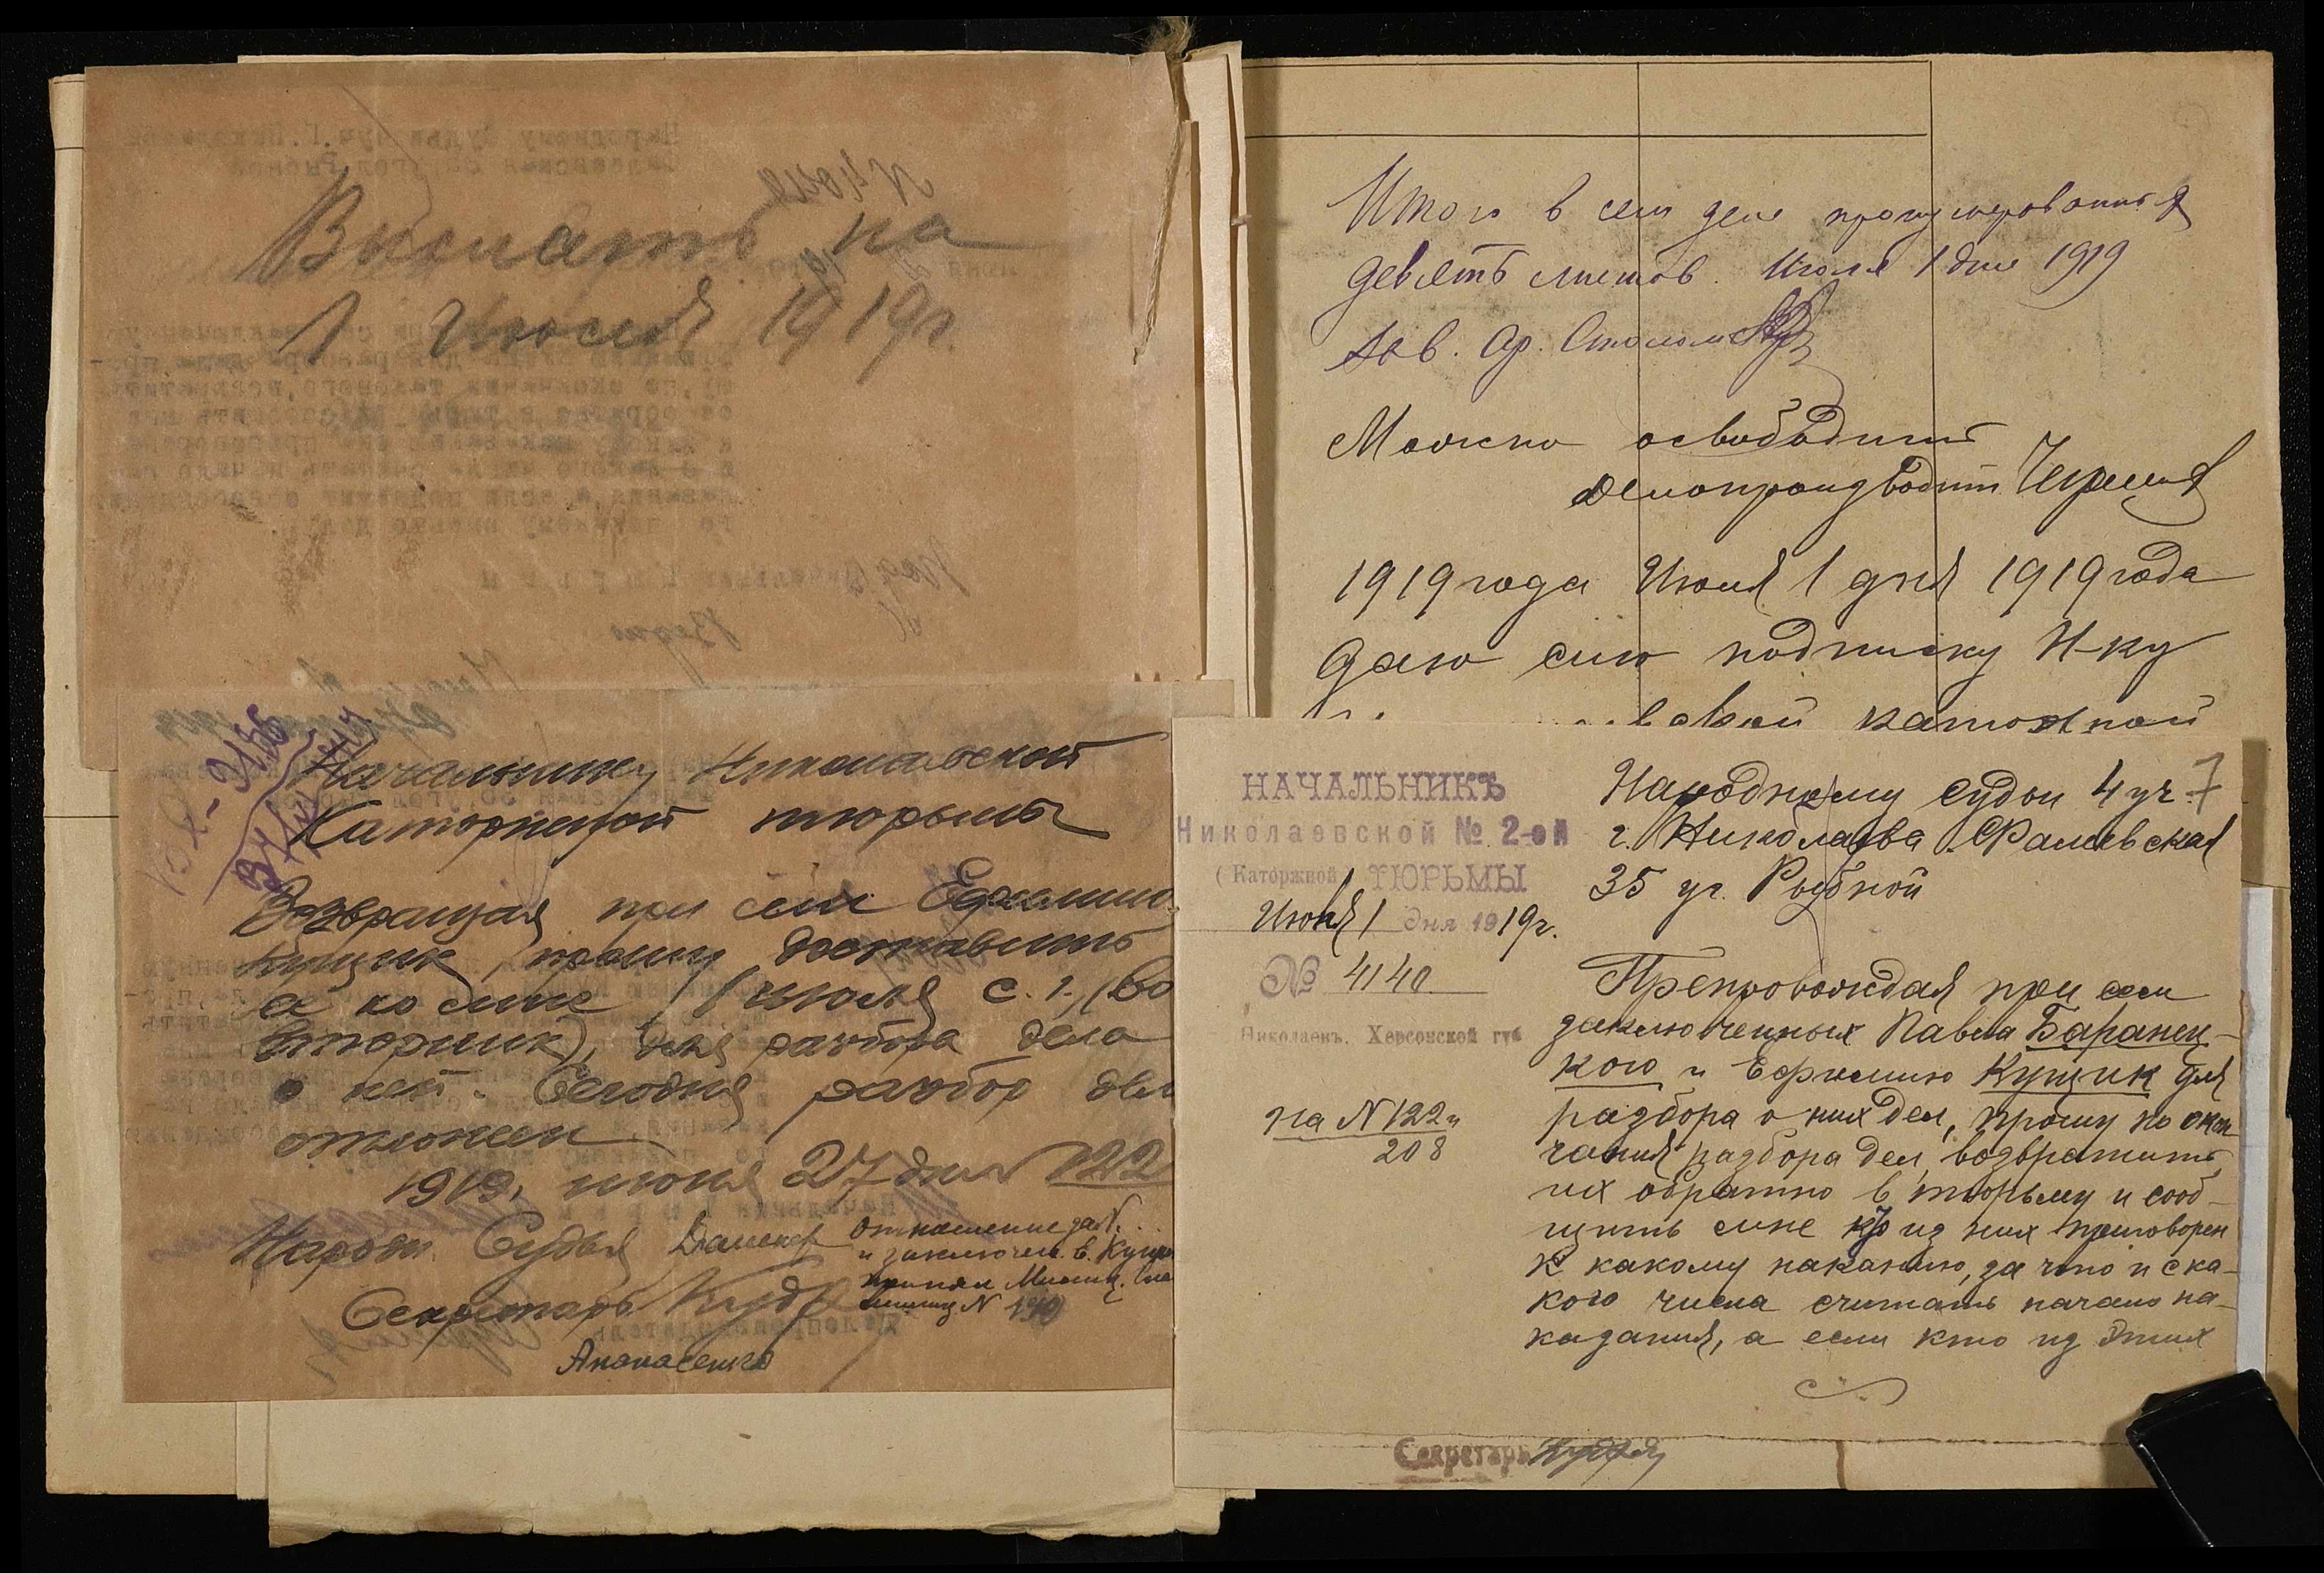 Выслать на
1 Июля 1919г.
Начальнику Николаевской
Каторжной тюрьмы
Возвращая при сем Ефимию
Кущик, прошу доставить
ее ко мне 1 июля с. г. (во
вторник), для разбора дела
о ней. Сегодня разбор дела
отложен
1919, июня 27 дня № 122
Народн. Судья
Отношение за №
и заключен. в. Кущик
принял Милиц.
№ 190
Секретарь
Апанасенко
Итого в сем деле пронумерованных
девять листов. Июля 1 дня 1919
Зав. Ар. Столом
Можно освободить
Делопроизводит
1919 года Июля 1 дня 1919 года
даю сию подписку Н-ку
каторжной
НАЧАЛЬНИКЪ
Николаевской № 2-ой
(Каторжной) ТЮРЬМЫ
Июля 1 дня 1919г.
№ 4140
Николаевъ, Херсонской губ
на N 122 и
208
7
Народному судьи 4 уч.
г. Николаева Фалеевская
35 уг. Рыбной
Препровождая при сем
заключенных Павла Баранец-
кого и Ефимию Кущик для
разбора о них дел, прошу по окон-
чания разбора дел, возвратить
их обратно в тюрьму и сооб-
щить мне кто из них приговорен
к какому наказанию, за что и с ка-
кого числа считать начало на-
казания, а если кто из этих
Секретарь